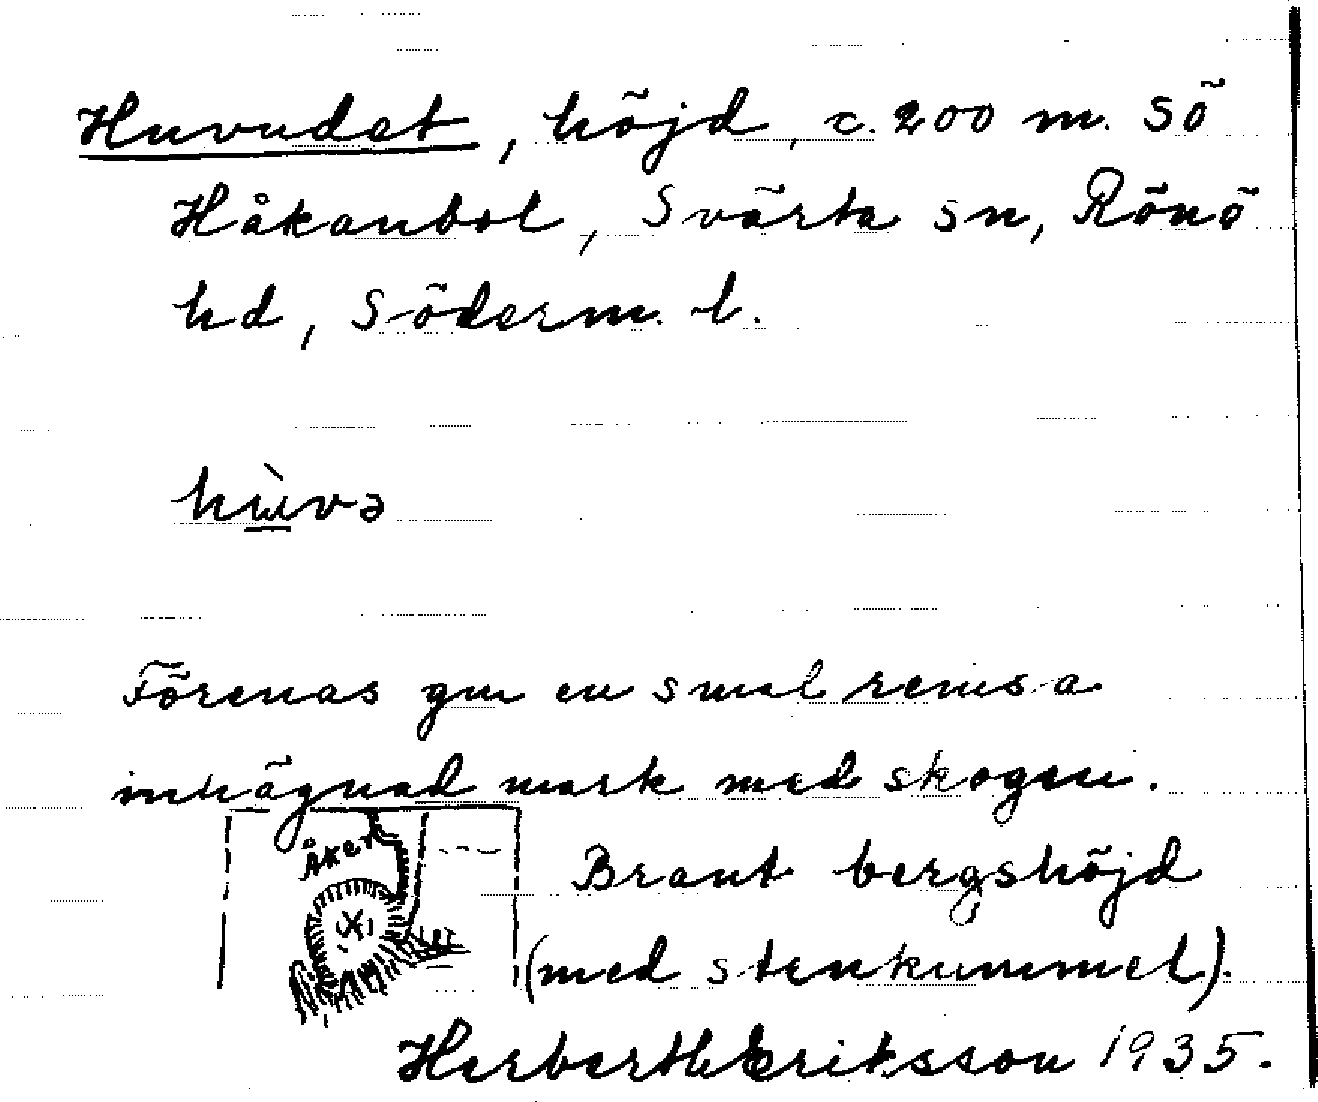 Huvudet, höjd, c. 200 m. SÖ
Håkanbol, Svärta sn, Rönö
hd, Söderm. l.
hùvə
Förenas gm en smal remsa
inhägnad mark med skogen.
Åker
Brant bergshöjd
(med stenkummel).
Eriksson 1935.